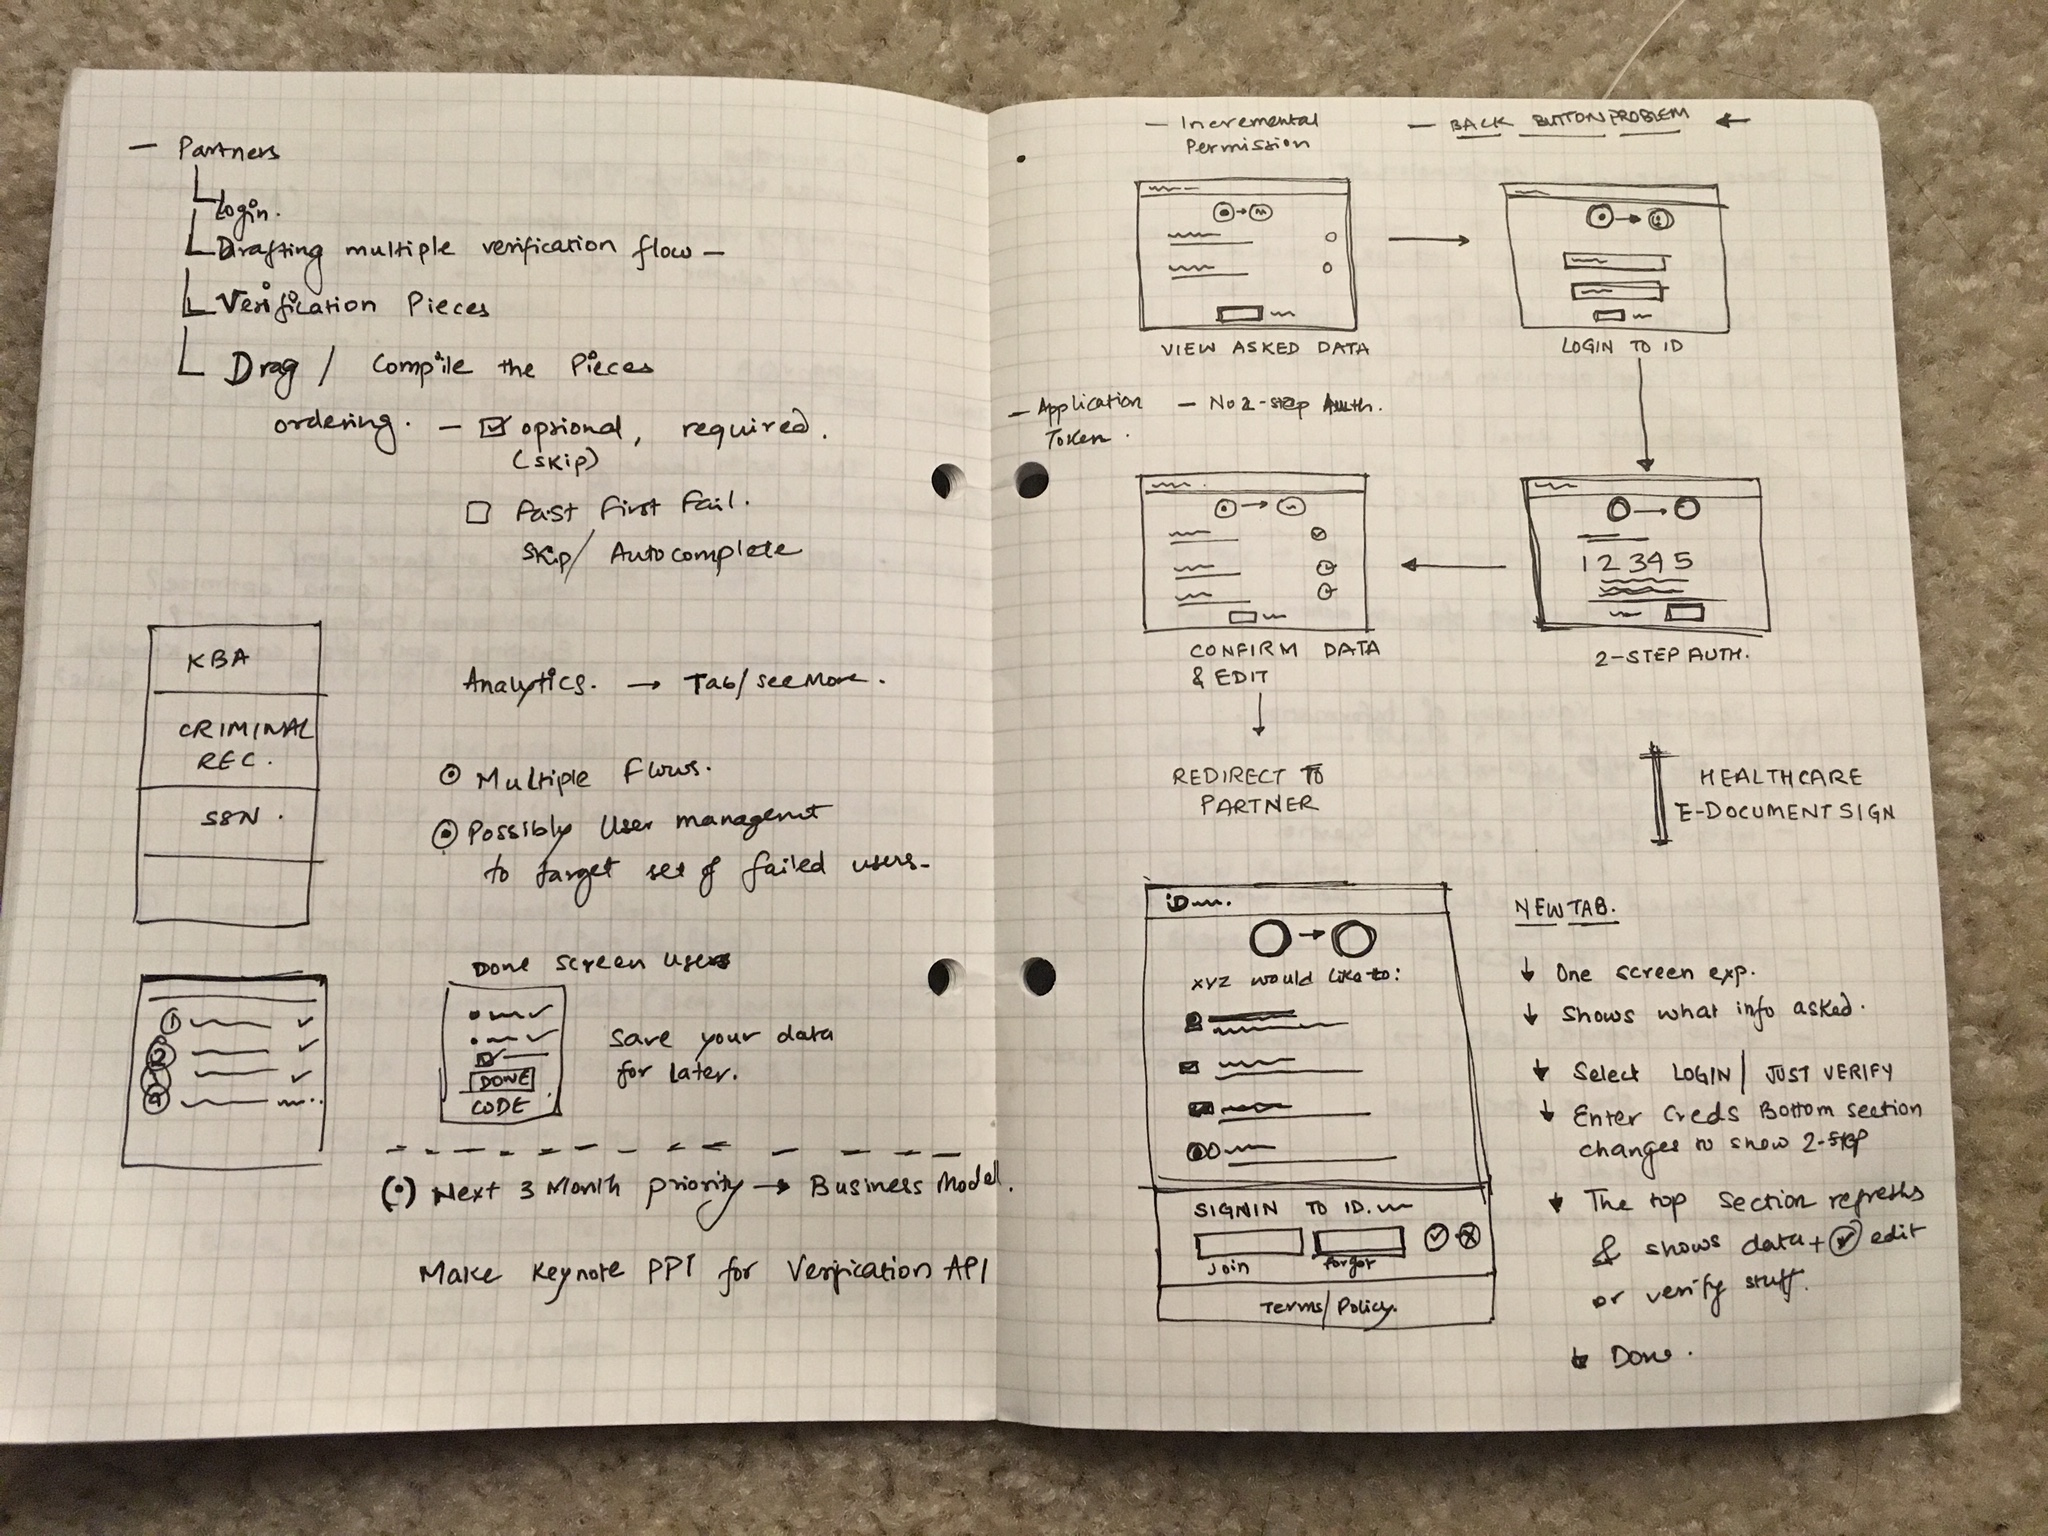 — Partners
Login.
Drafting multiple verification flow —
Verification Pieces
Drag / Compile the Pieces
ordering. — ☑ optional, required.
(skip)
☐ Fast First Fail.
Skip/ Autocomplete
KBA
CRIMINAL
REC.
SSN.
Analytics. → Tab/see More.
Multiple Flows.
Possibly User managemt
to target set of failed users—
1 ✓
2 ✓
3 ✓
4
Done screen users
DONE
CODE
Save your data
for later.
(•) Next 3 Month priority → Business Model.
Make Keynote PPT for Verification API
— Incremental
Permission
— BACK BUTTON PROBLEM ←
VIEW ASKED DATA
LOGIN TO ID
— Application
Token.
— No 2-step Auth.
12345
CONFIRM DATA
& EDIT
2-STEP AUTH.
REDIRECT TO
PARTNER
HEALTHCARE
E-DOCUMENT SIGN
iD
xyz would like to:
SIGNIN TO ID.
Join
forgot
Terms/Policy.
NEW TAB.
↓ One screen exp.
↓ Shows what info asked.
↓ Select LOGIN/ JUST VERIFY
↓ Enter Creds Bottom section
changes to show 2-step
↓ The top section refreshs
& shows data + ✓ edit
or verify stuff.
↓ Done.